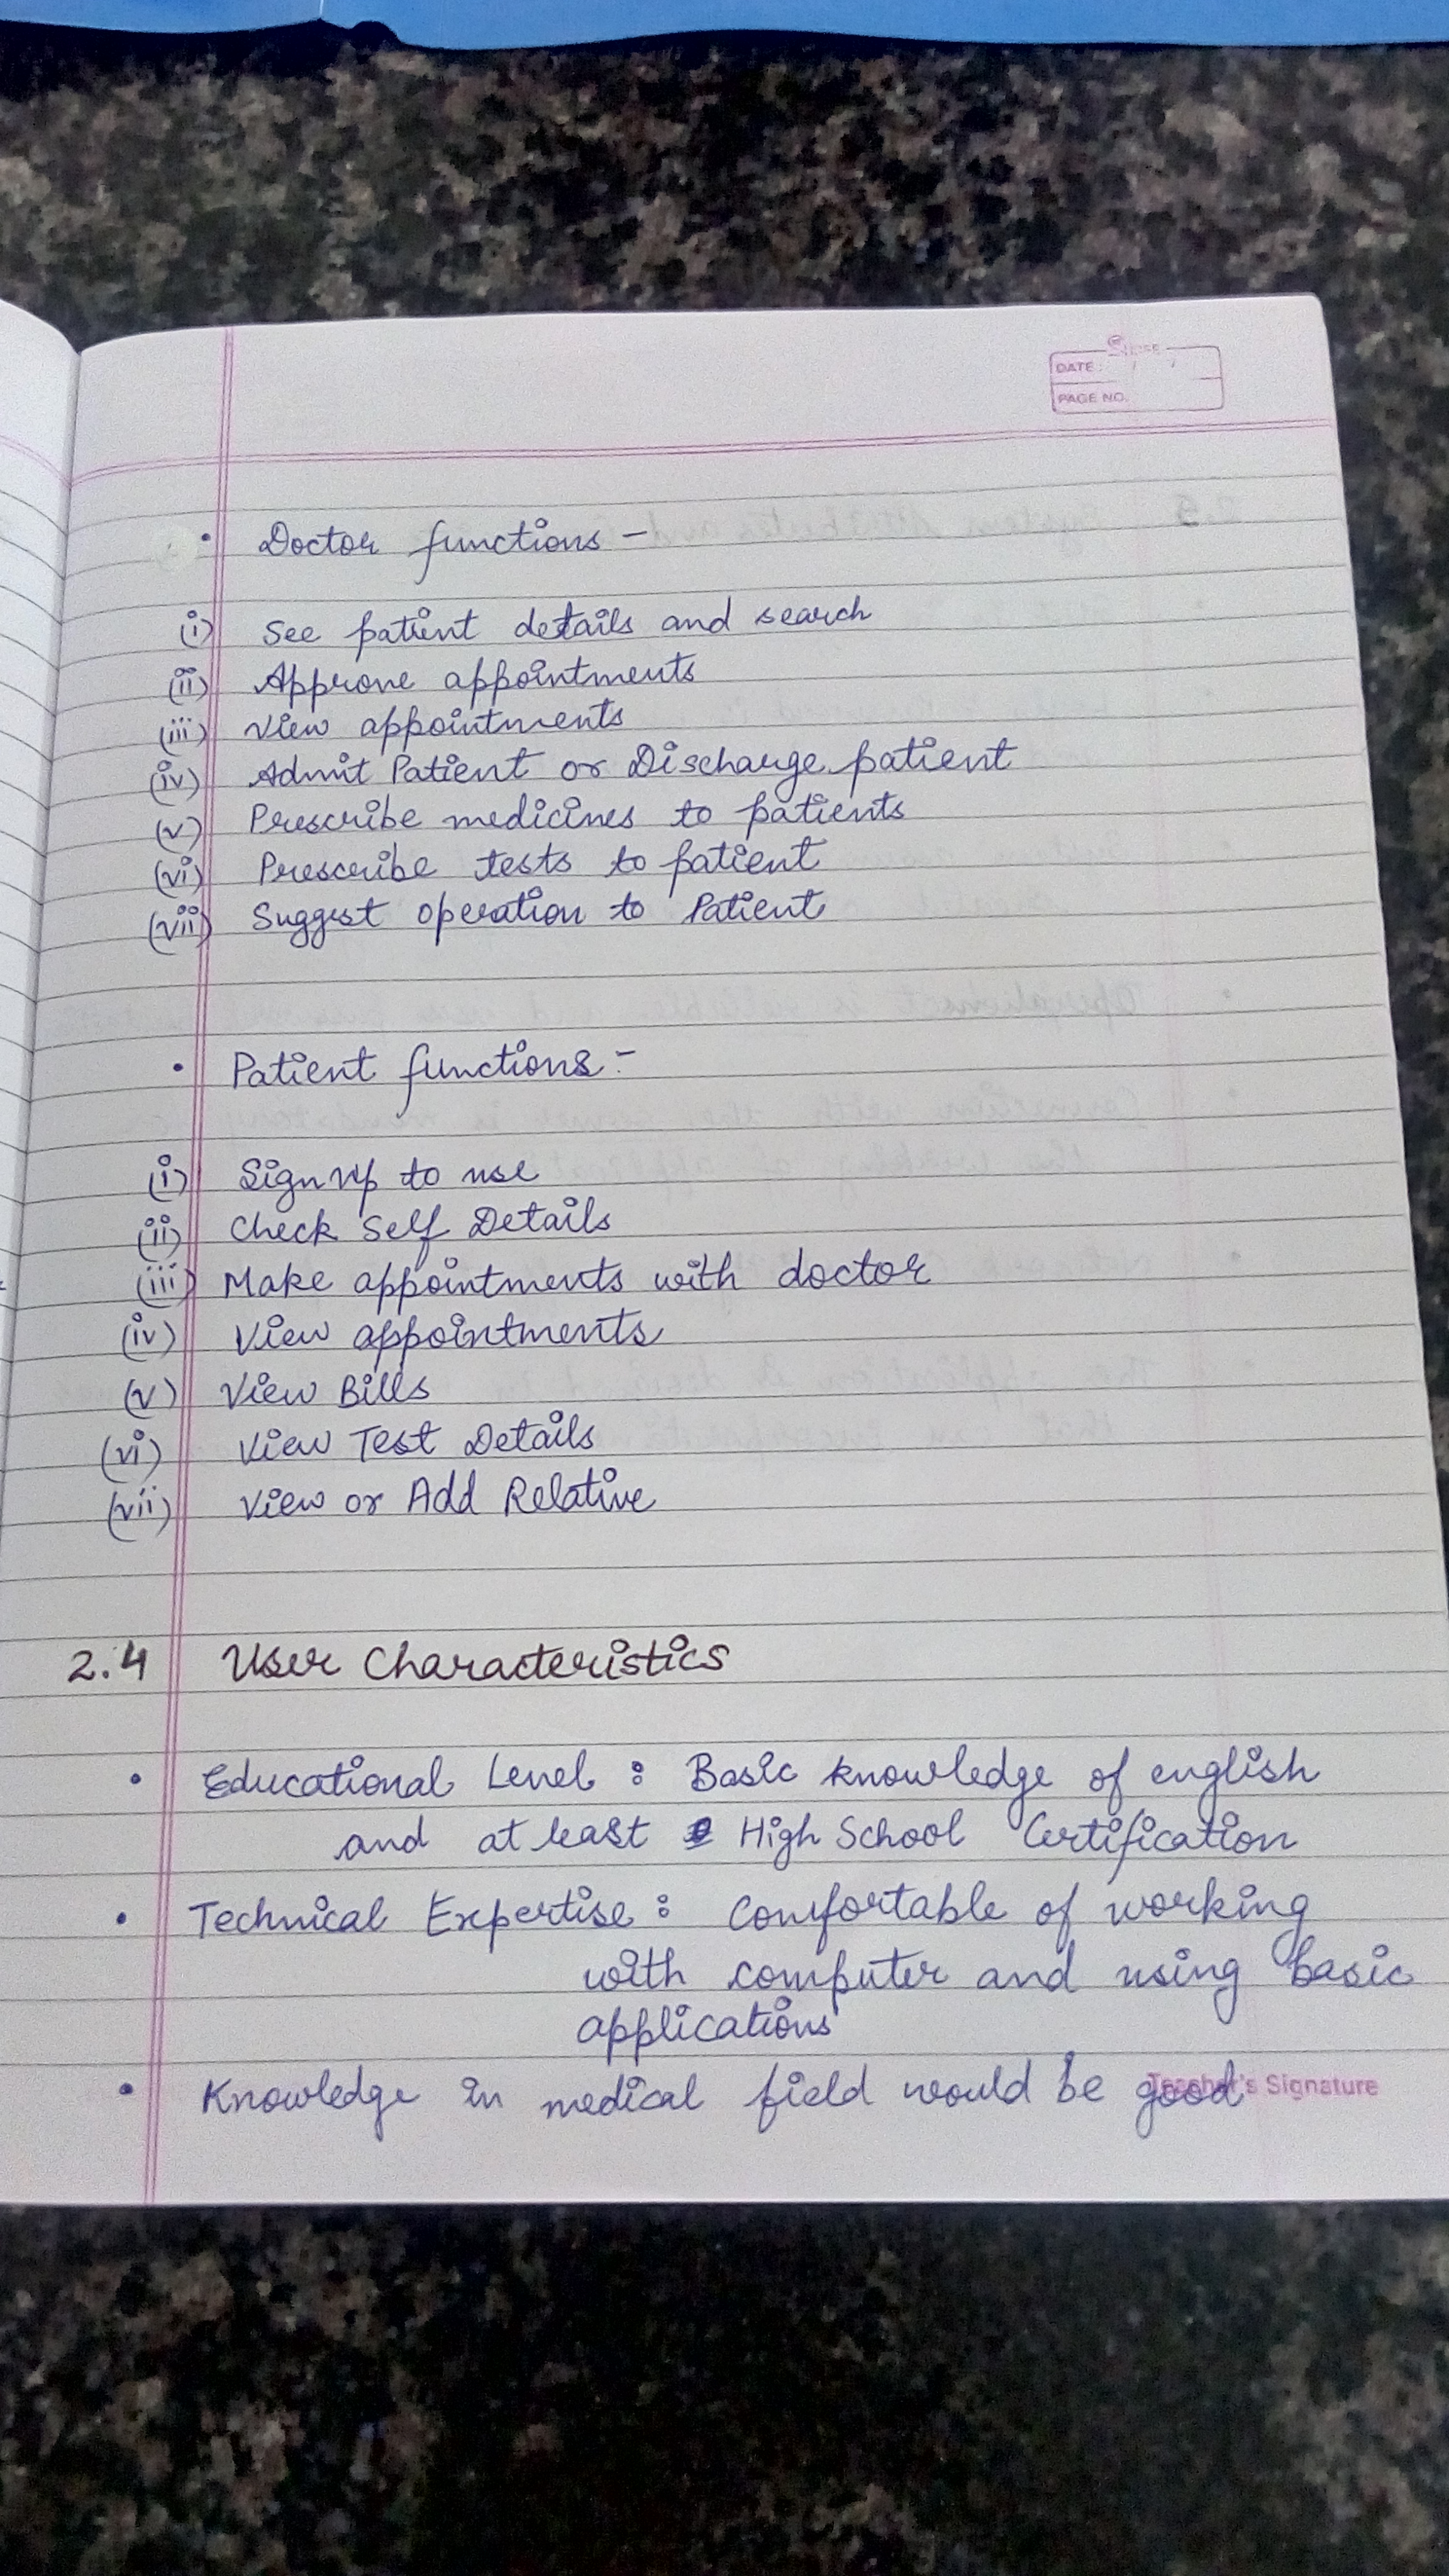 DATE:
PAGE NO.
• Doctor functions -
(i) See patient details and search
(ii) Approve appointments
(iii) View appointments
(iv) Admit Patient or Discharge patient
(v) Prescribe medicines to patients
(vi) Prescribe tests to patient
(vii) Suggest operation to Patient
• Patient functions :-
(i) Sign up to use
(ii) Check Self Details
(iii) Make appointments with doctor
(iv) View appointments
(v) View Bills
(vi) View Test Details
(vii) View or Add Relative
2.4 User Characteristics
• Educational Level : Basic knowledge of english
and at least High School Certification
• Technical Expertise : Comfortable of working
with computer and using basic
applications
• Knowledge in medical field would be good
Teacher's Signature